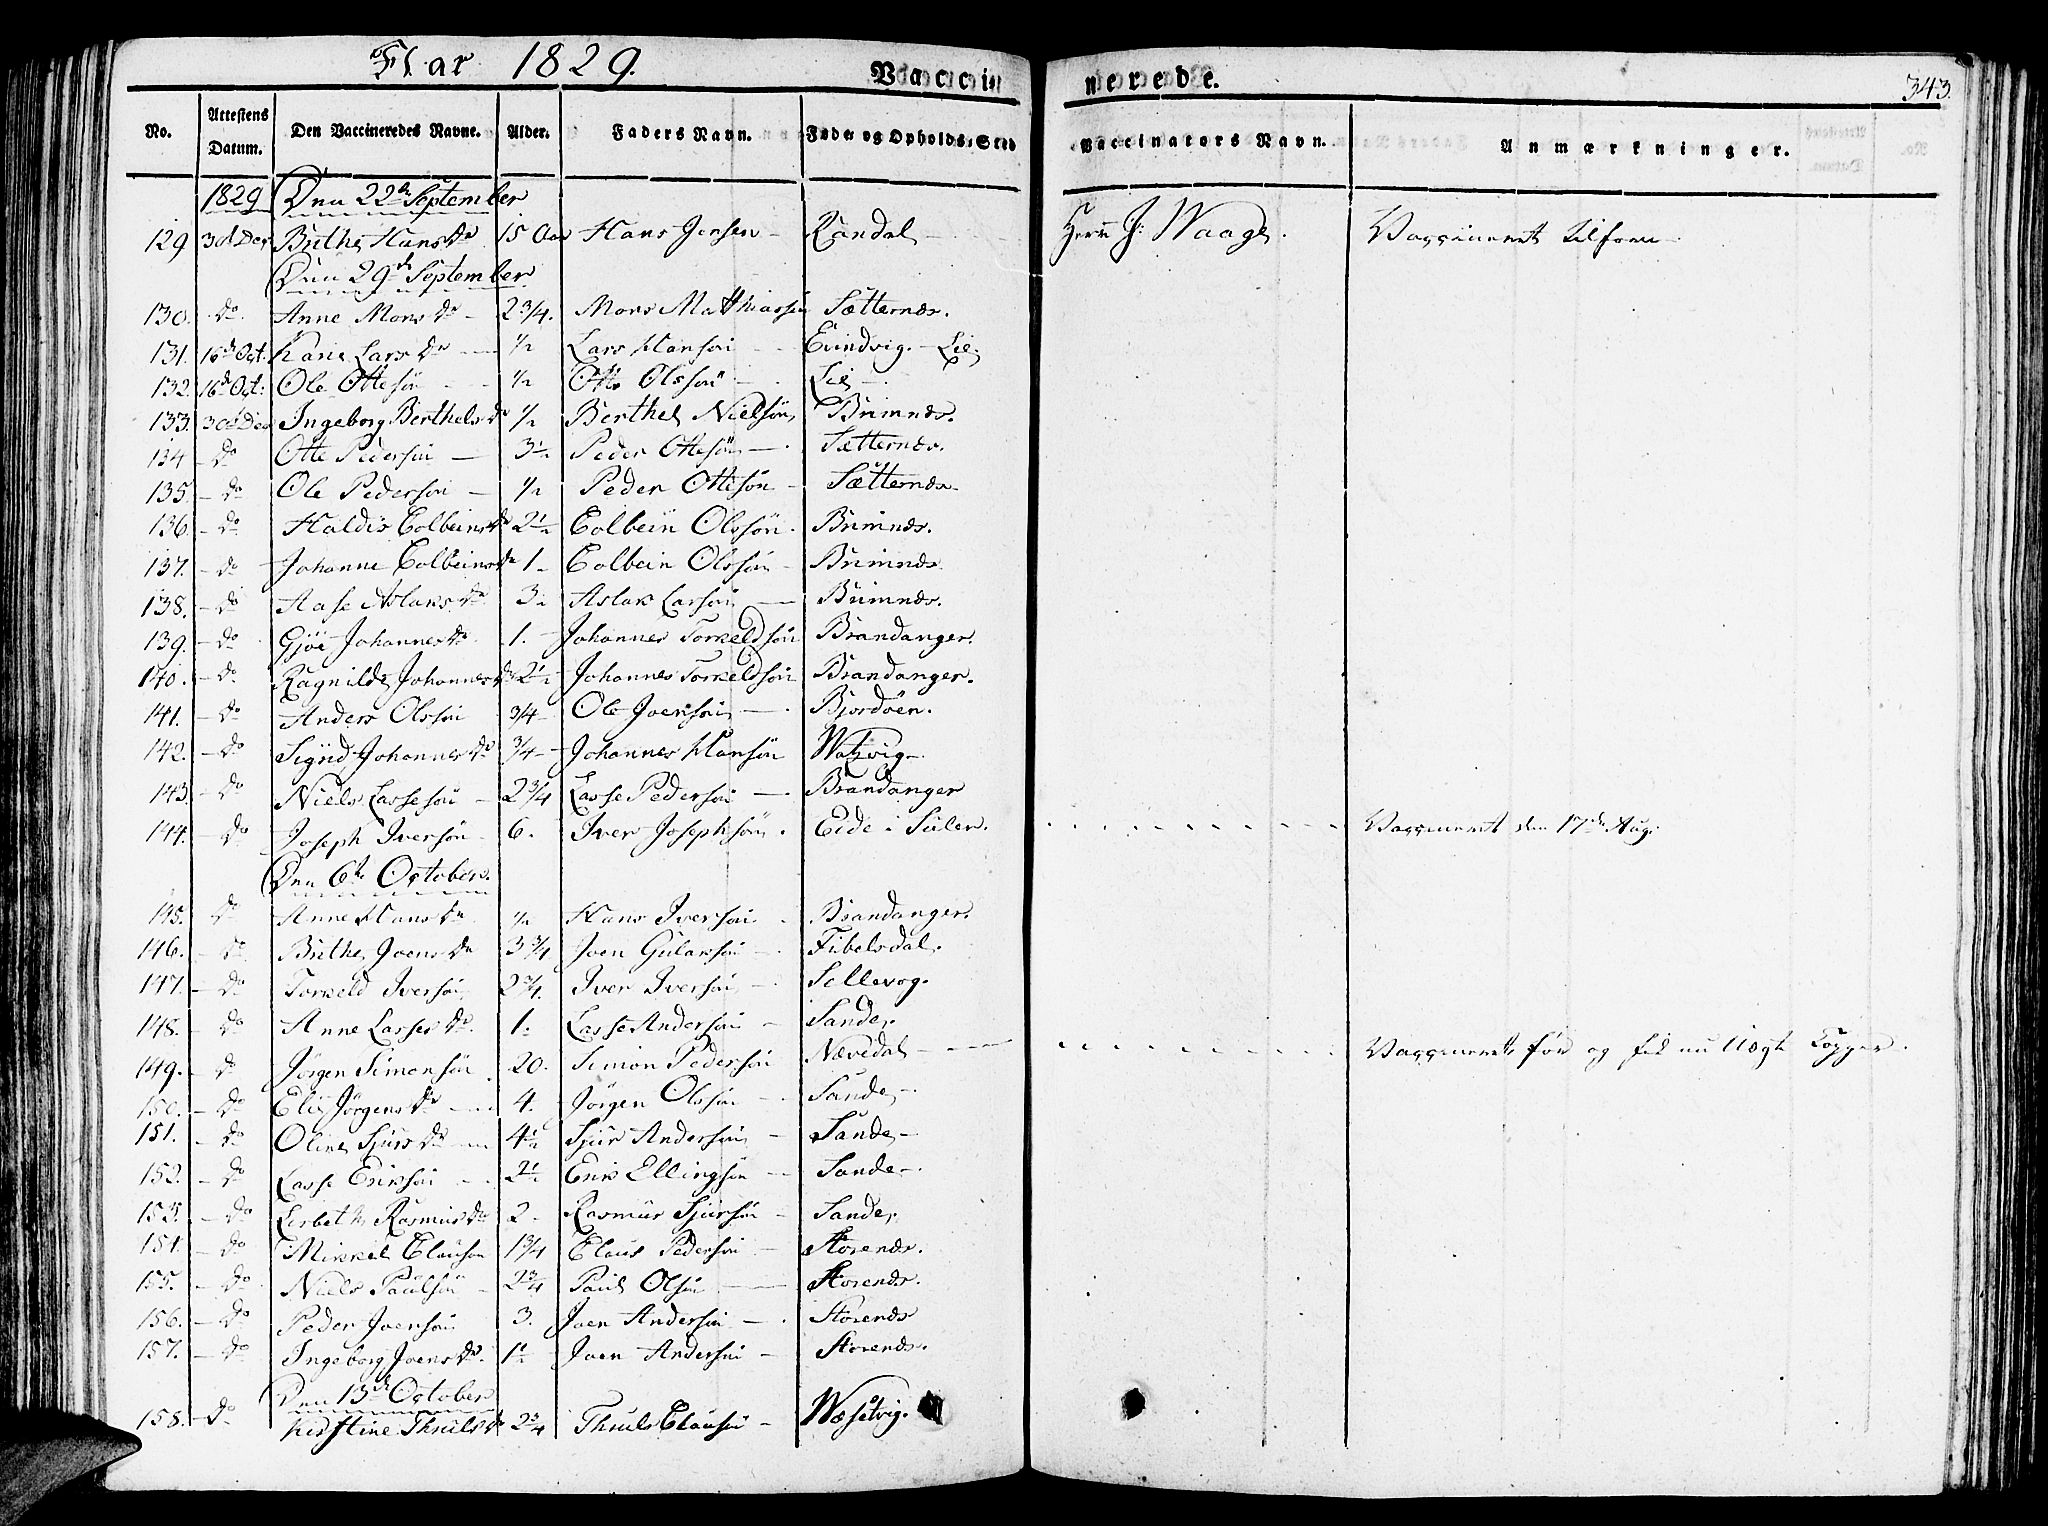 Aar 1829. Vaccinerede. 343.
No. Attestens Datum. Den Vaccineredes Navne. Alder. Faders Navn. Føde- og Opholds-Sted Vaccinators Navn. Anmærkninger.
1829 Den 22de September
129 3d Der Brithe Hans Dr 15 Aar Hans Jensen - Randal - Herr J: Waage. Vaccineret tilforn.
Den 29de September
130. do Anne Mons Dr - 2 3/4. Mons Matthiassen Sætternæs.
131. 16de Oct: Karie Lars Dr 1/2 Lars Hansøn Evindvig. - Lie.
132. 16de Oct: Ole Ottesøn 1/2 Otte Olssøn - Lie -
133. 3d Der Ingeborg Berthels Dr 1/2 Berthel Nielsøn Brimnæs.
134 - do Otte Pedersøn - 3 1/2 Peder Ottesøn - Sætternæs.
135 - do Ole Pedersøn - 1/2 Peder Ottesøn - Sætternæs
136. - do Haldis Colbeins Dr 2 1/2 Colbein Olssøn. Brimnæs.
137. - do Johanne Colbeins Dr 1 - Colbein Olssøn - Brimnæs
138. - do Aase Aslaks Dr 3 - Aslak Larsøn - Brimnæs.
139. - do Gjøe Johannes Dr 1. - Johannes Torkeldsøn Brandanger.
140. - do Ragnilde Johannes Dr 2 1/2 Johannes Torkeldsøn Brandanger.
141. - do Anders Olssøn 3/4 - Ole Joensøn - Bjordøen.
142. - do Sigrid Johannes Dr 3/4 - Johannes Hansøn Watzvig -
143. - do Niels Lassesøn - 2 3/4 Lasse Pedersøn - Brandanger
144. - do Joseph Iversøn 6. Iver Josephsøn. Eide i Suler. Vaccineret den 17de Aug.
Den 6te October.
145. do Anne Hans Dr 1/2 Hans Iversøn. Brandanger.
146. - do Brithe Joens Dr 3 3/4 Joen Gularsøn - Fibelsdal.
147. - do Torkeld Iversøn 2 3/4. Iver Iversøn - Sollevog.
148. - do Anne Lasses Dr. 1. Lasse Andersøn - Sande.
149. - do Jørgen Simonsøn 20. Simon Pedersøn Nævedal - Vaccineret før og fik nu Uægte Copper.
150. - do Elis Jørgens Dr 4. Jørgen Olssøn - Sande -
151. - do Oline Sjurs Dr 4 1/2 Sjur Andersøn - Sande -
152. - do Lasse Eriksøn 2 1/2 Erik Ellingsøn - Sande -
153. - do Lisbeth Rasmus Dr 2 - Rasmus Sjursøn - Sande.
154. - do Mikkel Clausøn 1 3/4 Claus Pedersøn - Storenæs.
155. - do Niels Paulsøn - 2 3/4 Paul Olsøn - Storenæs.
156. - do Peder Joensøn 3. Joen Andersøn - Storenæs
157. - do Ingeborg Joens Dr. 1 1/2 Joen Andersøn - Storenæs.
Den 13de October
158. - do Kirstine Thruls Dr 2 3/4 Thruls Clausøn - Wæsetvig.